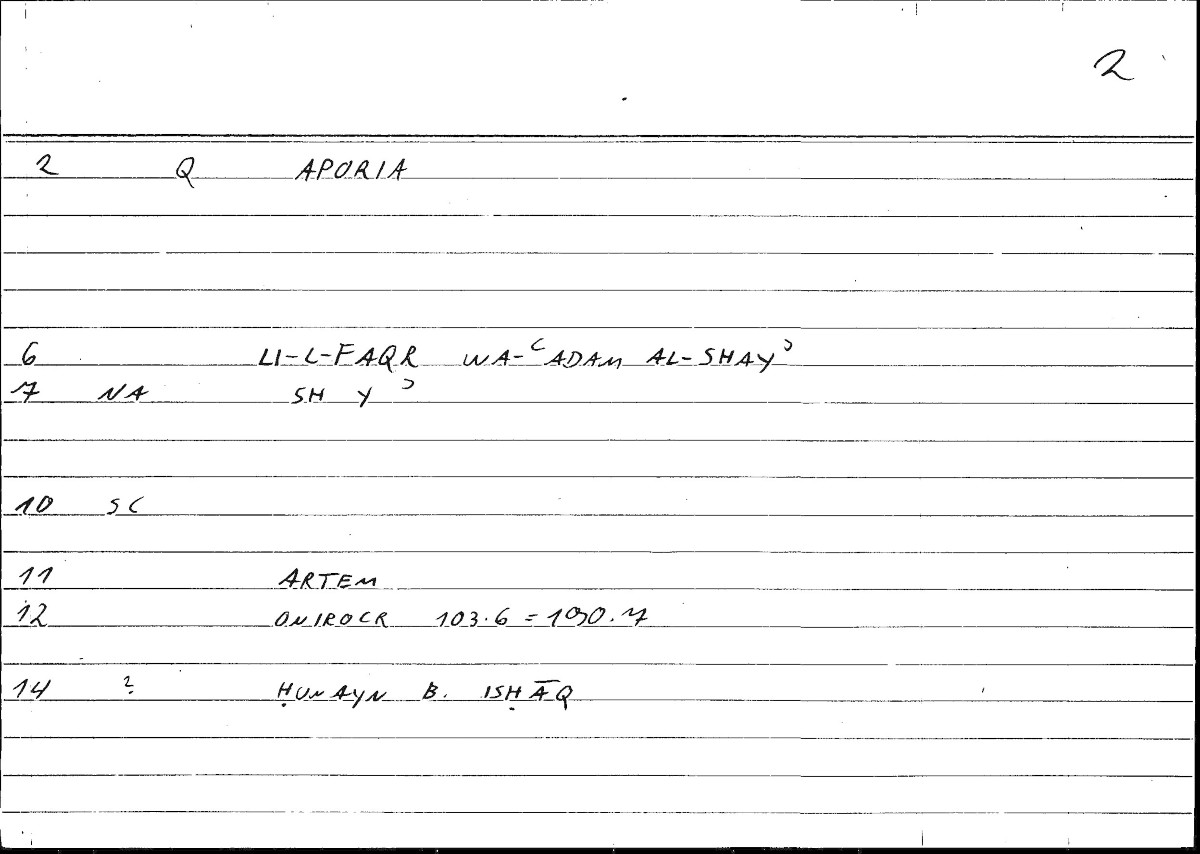 2
2 Q APORIA
6 LI-L-FAQR WA-ʿADAM AL-SHAYʾ
7 NA SH Y ʾ
10 SC
11 ARTEM
12 ONIROCR 103.6 = 190.7
14 ? ḤUNAYN B. ISḤĀQ